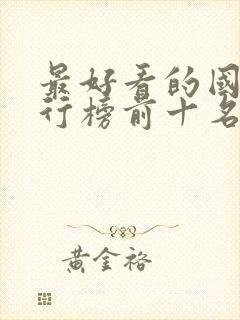 最好看的國
行榜前十名
黃金裕